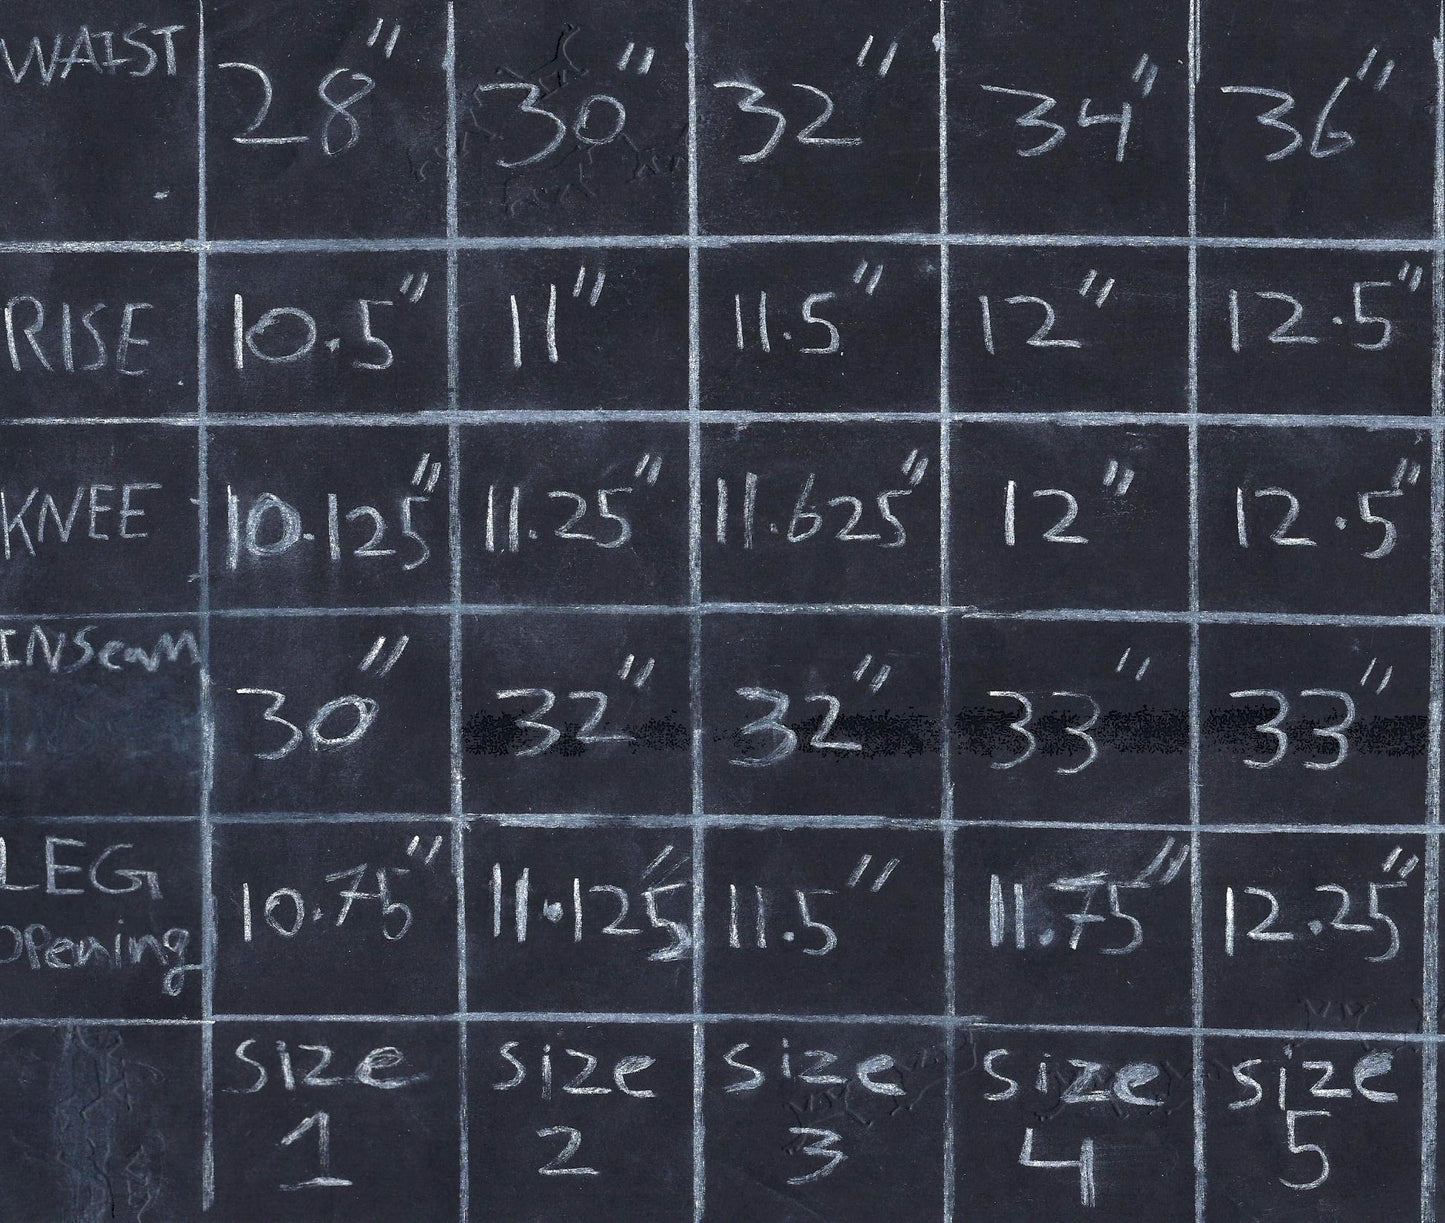 WAIST 28" 30" 32" 34" 36"
RISE 10.5" 11" 11.5" 12" 12.5"
KNEE 10.125" 11.25" 11.625" 12" 12.5"
INSeam 30" 32" 32" 33" 33"
LEG 10.75" 11.125" 11.5" 11.75" 12.25"
opening
size size size size size
1 2 3 4 5